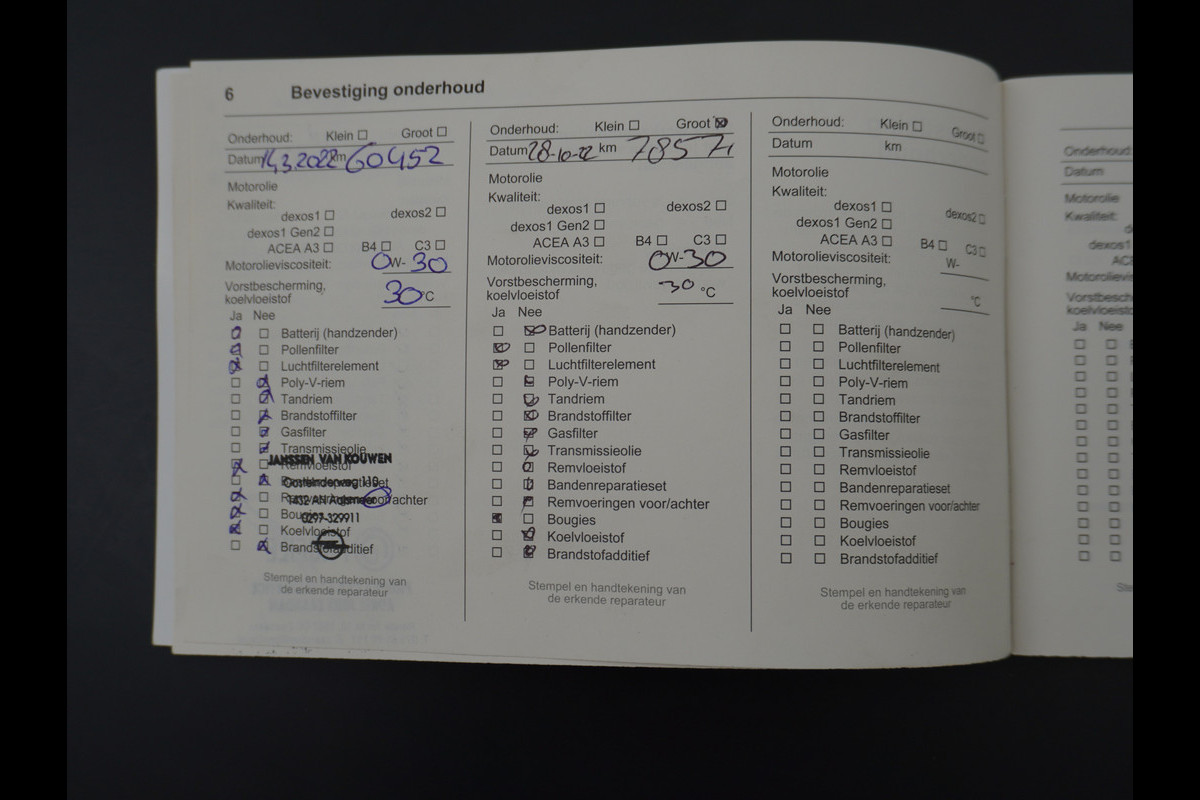 6 Bevestiging onderhoud
Onderhoud: Klein ☐ Groot ☐
Datum 14.3.2022 km 60452
Motorolie
Kwaliteit:
dexos1 ☐ dexos2 ☐
dexos1 Gen2 ☐
ACEA A3 ☐ B4 ☐ C3 ☐
Motorolieviscositeit: 0W-30
Vorstbescherming,
koelvloeistof 30 °C
Ja Nee
Batterij (handzender)
Pollenfilter
Luchtfilterelement
Poly-V-riem
Tandriem
Brandstoffilter
Gasfilter
Transmissieolie
JANSSEN VAN KOUWEN
Remvloeistof
110
1432 AN Aalsmeer
voor/achter
0297-329911
Bougies
Koelvloeistof
Brandstofadditief
Stempel en handtekening van
de erkende reparateur
Onderhoud: Klein ☐ Groot ☒
Datum 28-10-22 km 78571
Motorolie
Kwaliteit:
dexos1 ☐ dexos2 ☐
dexos1 Gen2 ☐
ACEA A3 ☐ B4 ☐ C3 ☐
Motorolieviscositeit: 0W-30
Vorstbescherming,
koelvloeistof 30 °C
Ja Nee
Batterij (handzender)
Pollenfilter
Luchtfilterelement
Poly-V-riem
Tandriem
Brandstoffilter
Gasfilter
Transmissieolie
Remvloeistof
Bandenreparatieset
Remvoeringen voor/achter
Bougies
Koelvloeistof
Brandstofadditief
Stempel en handtekening van
de erkende reparateur
Onderhoud: Klein ☐ Groot ☐
Datum km
Motorolie
Kwaliteit:
dexos1 ☐ dexos2 ☐
dexos1 Gen2 ☐
ACEA A3 ☐ B4 ☐ C3 ☐
Motorolieviscositeit: W-
Vorstbescherming,
koelvloeistof °C
Ja Nee
Batterij (handzender)
Pollenfilter
Luchtfilterelement
Poly-V-riem
Tandriem
Brandstoffilter
Gasfilter
Transmissieolie
Remvloeistof
Bandenreparatieset
Remvoeringen voor/achter
Bougies
Koelvloeistof
Brandstofadditief
Stempel en handtekening van
de erkende reparateur
Onderhoud:
Datum
Motorolie
Kwaliteit:
dexos1
Ja Nee